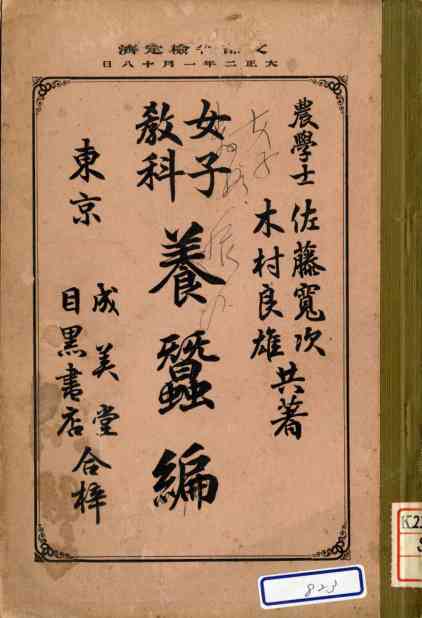 文部省檢定濟
大正二年一月十八日
農學士 佐藤寬次
木村良雄
共著
女子
敎科
養蠶編
東京
成美堂
目黑書店
合梓
823
K22